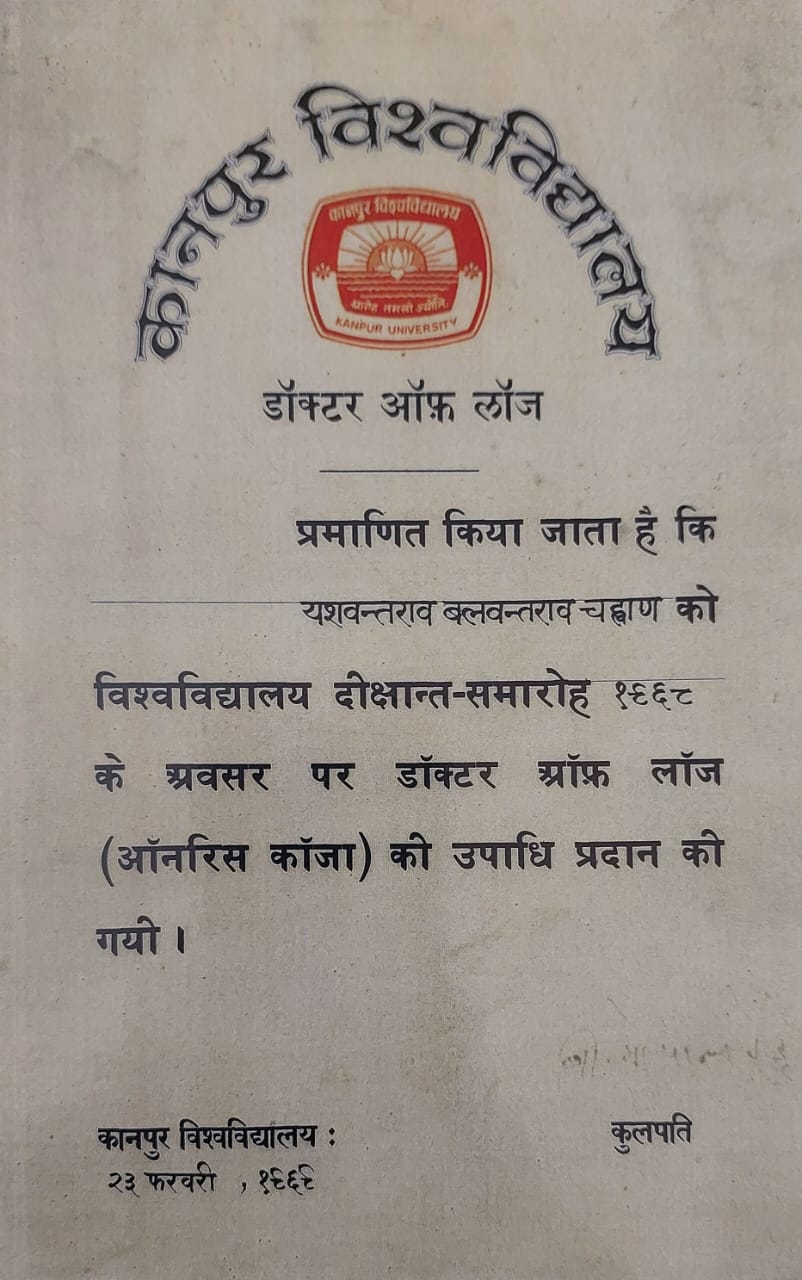 कानपुर विश्वविद्यालय
कानपुर विश्वविद्यालय
आरोह तमसो ज्योतिः
KANPUR UNIVERSITY
डॉक्टर ऑफ़ लॉज
प्रमाणित किया जाता है कि
यशवन्तराव बलवन्तराव चह्वाण को
विश्वविद्यालय दीक्षान्त-समारोह १९६८
के अवसर पर डॉक्टर ऑफ़ लॉज
(ऑनरिस कॉजा) की उपाधि प्रदान की
गयी ।
कानपुर विश्वविद्यालय :
कुलपति
२३ फरवरी , १९६९